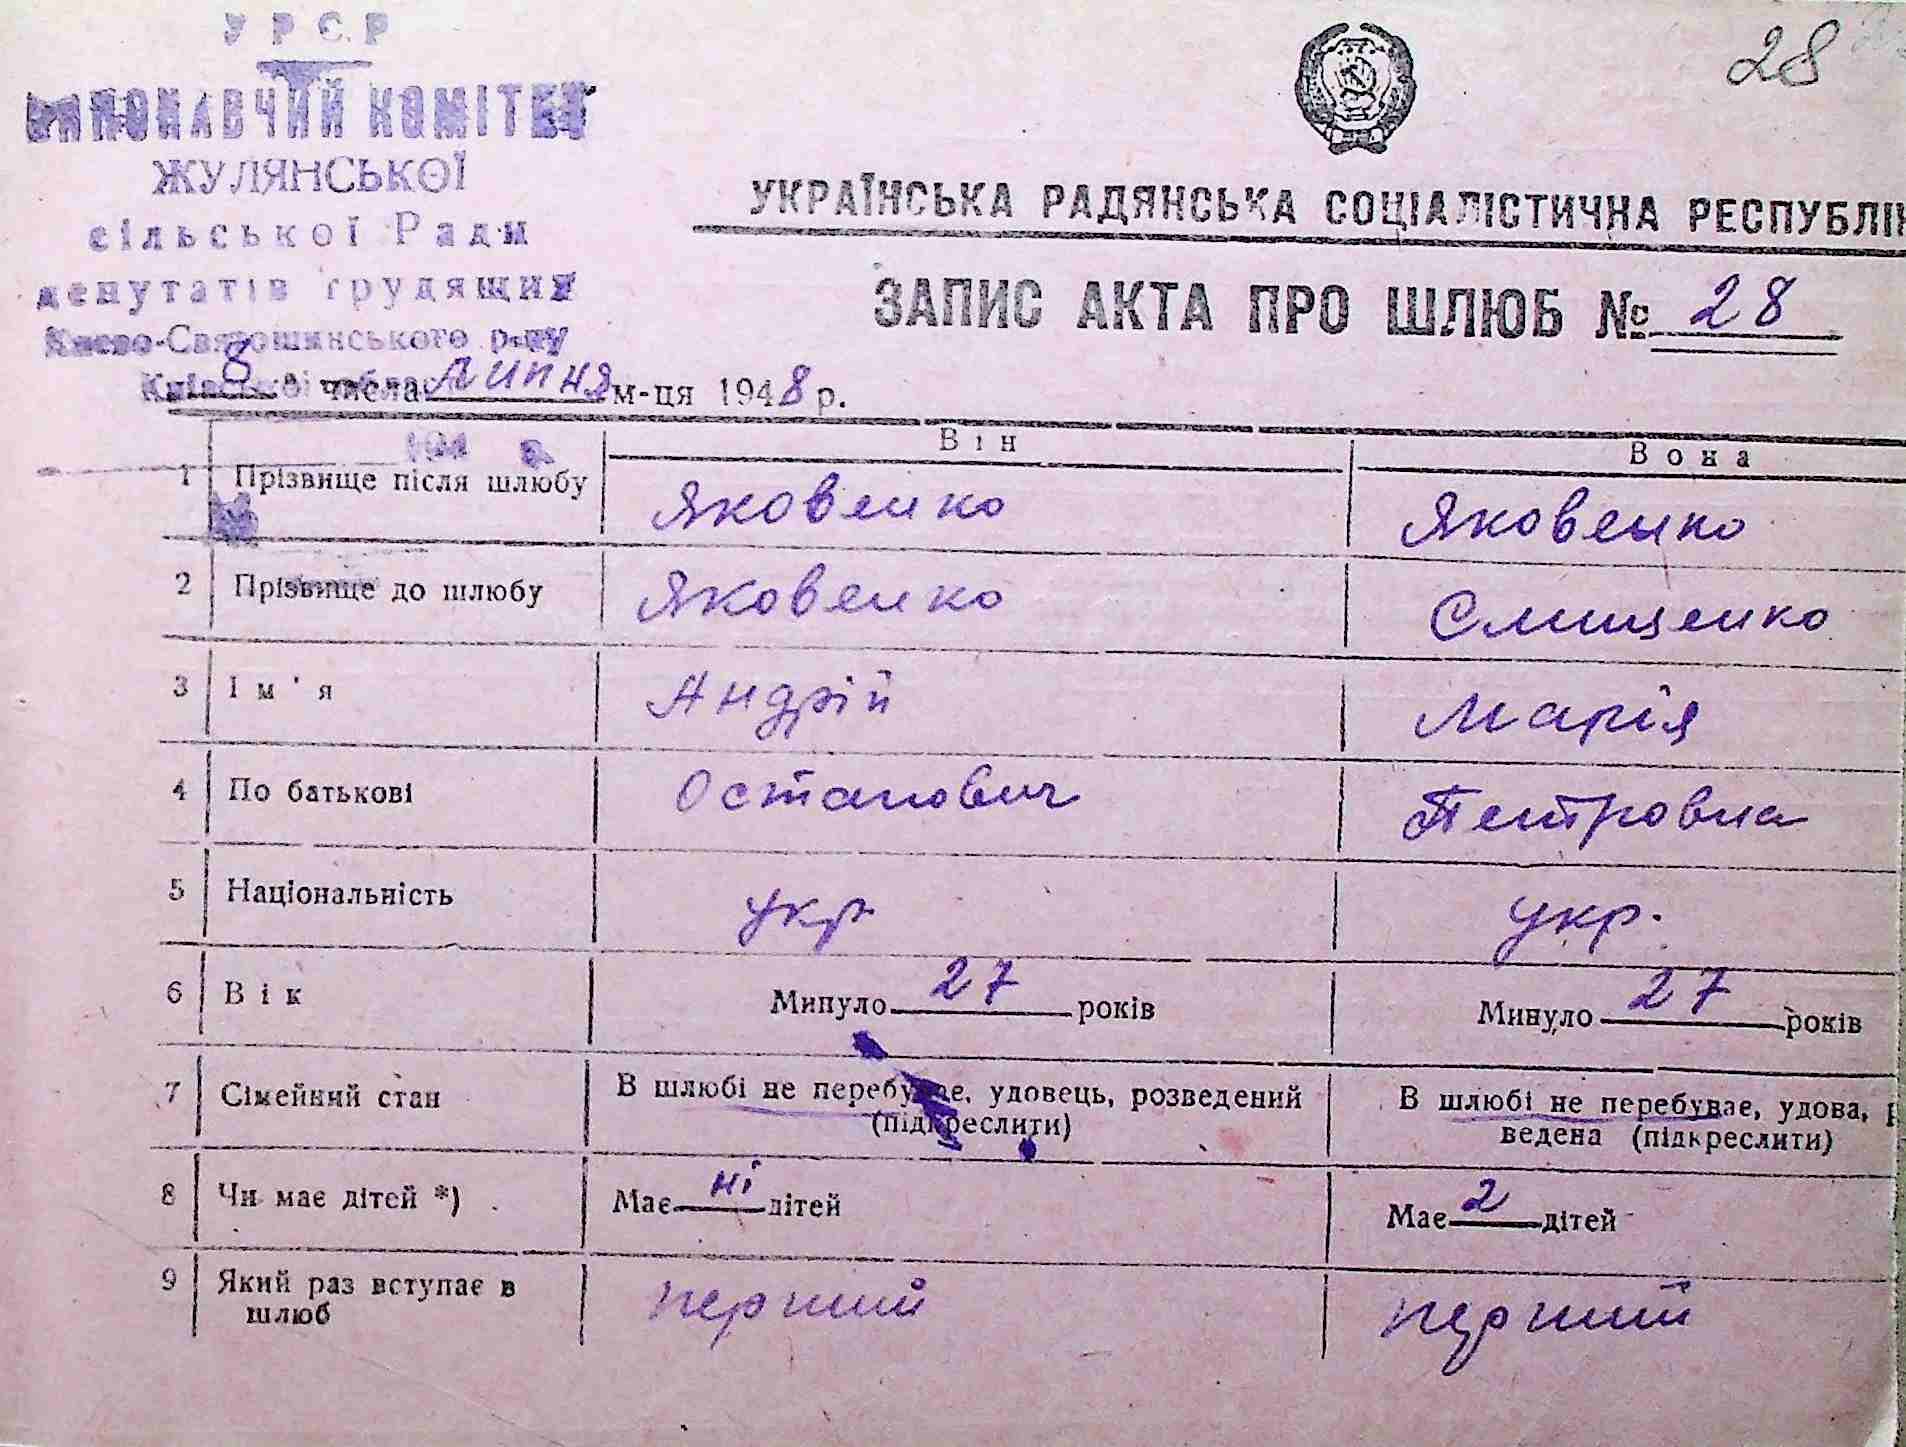 28
УРСР
ВИКОНАВЧИЙ КОМІТЕТ
ЖУЛЯНСЬКОЇ
сільської Ради
депутатів трудящих
Києво-Святошинського р-ну
Київської області
194 р.
УКРАЇНСЬКА РАДЯНСЬКА СОЦІАЛІСТИЧНА РЕСПУБЛІК
ЗАПИС АКТА ПРО ШЛЮБ № 28
8 числа Липня м-ця 1948 р.
Він Вона
1 Прізвище після шлюбу Яковенко Яковенко
2 Прізвище до шлюбу Яковенко Слищенко
3 Ім'я Андрій Марія
4 По батькові Остапович Петровна
5 Національність укр укр.
6 Вік Минуло 27 років Минуло 27 років
7 Сімейний стан В шлюбі не перебуває, удовець, розведений (підкреслити) В шлюбі не перебуває, удова, р
ведена (підкреслити)
8 Чи має дітей *) Має ні дітей Має 2 дітей
9 Який раз вступає в шлюб перший перший